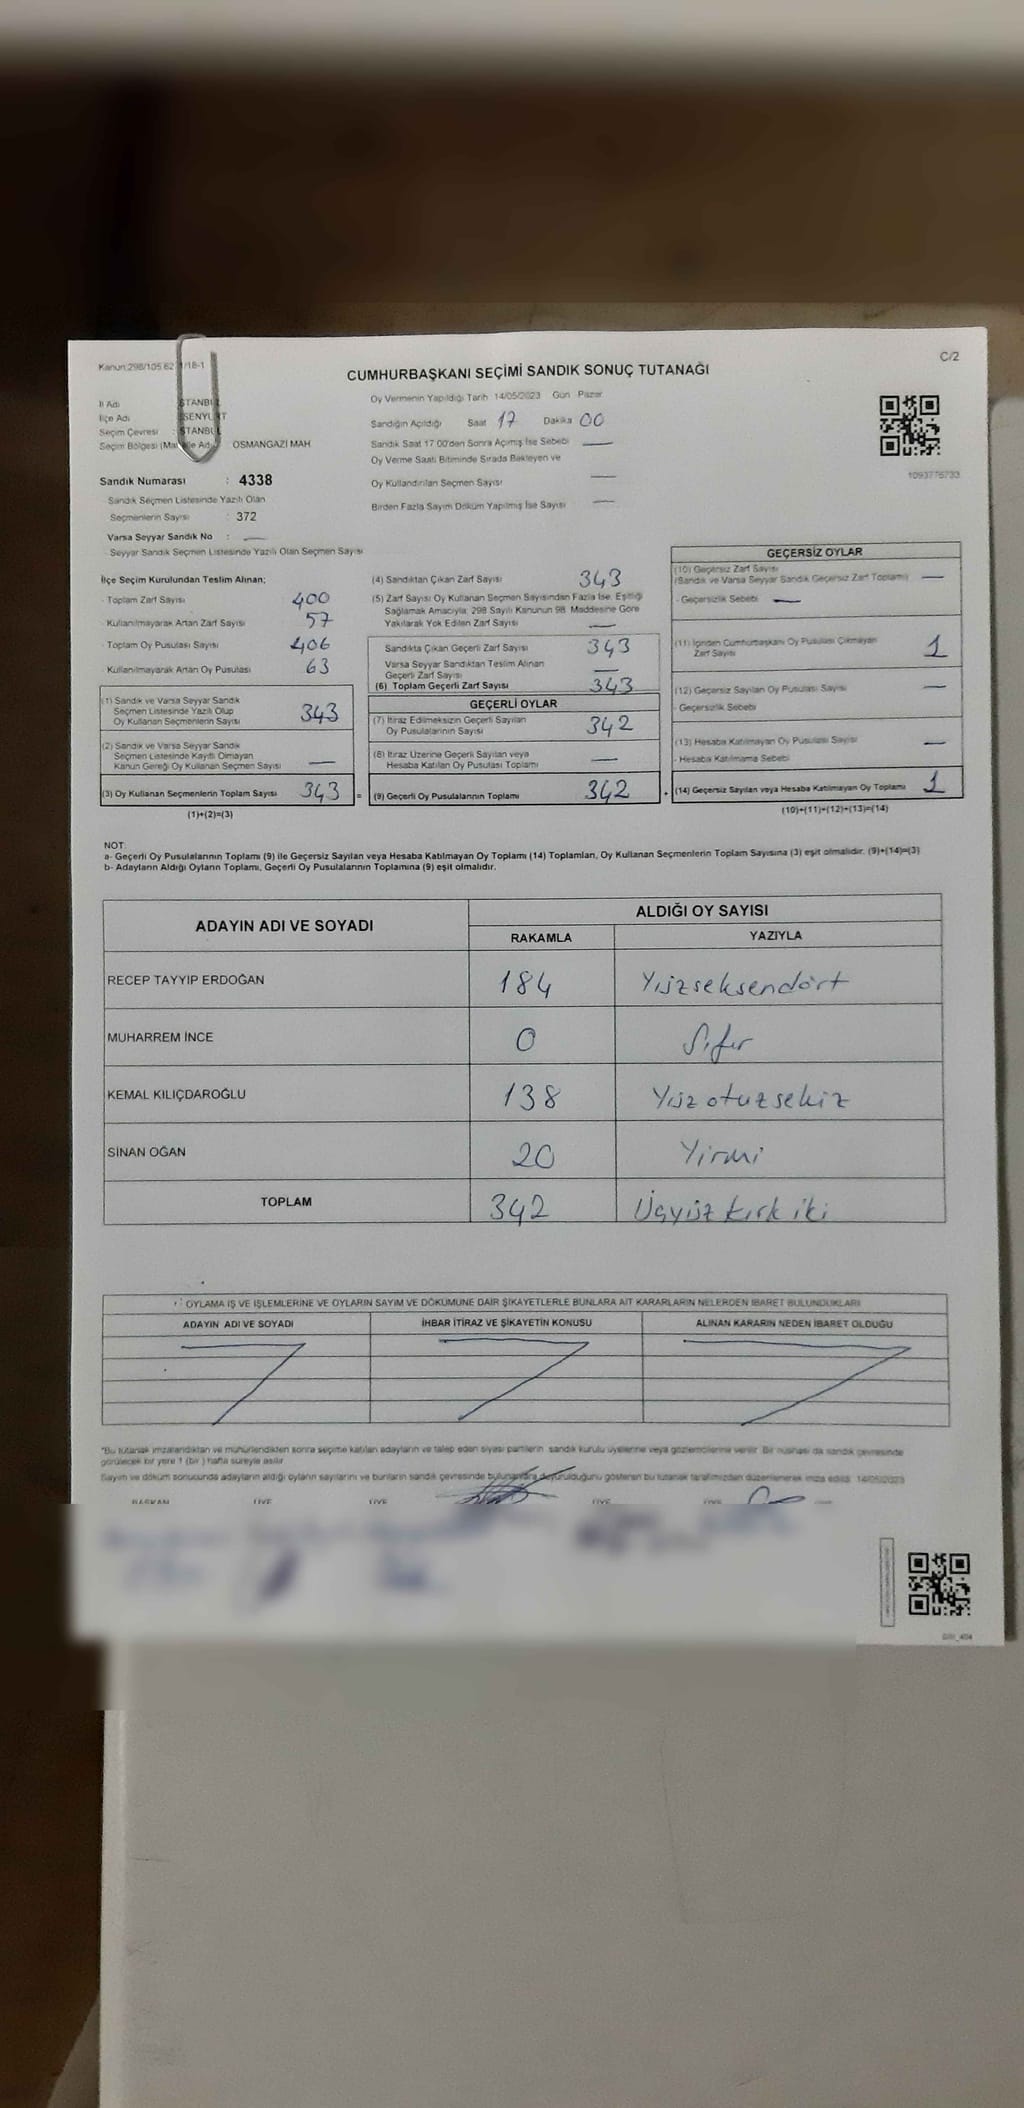 Kanun:298/105.62 1/18-1
C/2
CUMHURBAŞKANI SEÇİMİ SANDIK SONUÇ TUTANAĞI
İl Adı : STANBUL
İlçe Adı SENYURT
Seçim Çevresi : STANBUL
Seçim Bölgesi (Mahalle Adı) OSMANGAZİ MAH
Sandık Numarası : 4338
Sandık Seçmen Listesinde Yazılı Olan
Seçmenlerin Sayısı : 372
Varsa Seyyar Sandık No : —
- Seyyar Sandık Seçmen Listesinde Yazılı Olan Seçmen Sayısı
Oy Vermenin Yapıldığı Tarih 14/05/2023 Gün Pazar
Sandığın Açıldığı Saat 17 Dakika 00
Sandık Saat 17 00'den Sonra Açmış İse Sebebi —
Oy Verme Saati Bitiminde Sırada Bekleyen ve
Oy Kullandırılan Seçmen Sayısı —
Birden Fazla Sayım Döküm Yapılmış İse Sayısı —
1093776733
İlçe Seçim Kurulundan Teslim Alınan;
- Toplam Zarf Sayısı 400
- Kullanılmayarak Artan Zarf Sayısı 57
- Toplam Oy Pusulası Sayısı 406
- Kullanılmayarak Artan Oy Pusulası 63
(1) Sandık ve Varsa Seyyar Sandık
Seçmen Listesinde Yazılı Olup
Oy Kullanan Seçmenlerin Sayısı 343
(2) Sandık ve Varsa Seyyar Sandık
Seçmen Listesinde Kayıtlı Olmayan
Kanun Gereği Oy Kullanan Seçmen Sayısı —
(3) Oy Kullanan Seçmenlerin Toplam Sayısı 343 =
(1)+(2)=(3)
(4) Sandıktan Çıkan Zarf Sayısı 343
(5) Zarf Sayısı Oy Kullanan Seçmen Sayısından Fazla İse, Eşitliği
Sağlamak Amacıyla, 298 Sayılı Kanunun 98. Maddesine Göre
Yakılarak Yok Edilen Zarf Sayısı —
Sandıkta Çıkan Geçerli Zarf Sayısı 343
Varsa Seyyar Sandıktan Teslim Alınan
Geçerli Zarf Sayısı —
(6) Toplam Geçerli Zarf Sayısı 343
GEÇERLİ OYLAR
(7) İtiraz Edilmeksizin Geçerli Sayılan
Oy Pusulalarının Sayısı 342
(8) İtiraz Üzerine Geçerli Sayılan veya
Hesaba Katılan Oy Pusulası Toplamı —
(9) Geçerli Oy Pusulalarının Toplamı 342 +
GEÇERSİZ OYLAR
(10) Geçersiz Zarf Sayısı
(Sandık ve Varsa Seyyar Sandık Geçersiz Zarf Toplamı) —
- Geçersizlik Sebebi —
(11) İçinden Cumhurbaşkanı Oy Pusulası Çıkmayan
Zarf Sayısı 1
(12) Geçersiz Sayılan Oy Pusulası Sayısı —
- Geçersizlik Sebebi
(13) Hesaba Katılmayan Oy Pusulası Sayısı —
- Hesaba Katılmama Sebebi
(14) Geçersiz Sayılan veya Hesaba Katılmayan Oy Toplamı 1
(10)+(11)+(12)+(13)=(14)
NOT:
a- Geçerli Oy Pusulalarının Toplamı (9) ile Geçersiz Sayılan veya Hesaba Katılmayan Oy Toplamı (14) Toplamları, Oy Kullanan Seçmenlerin Toplam Sayısına (3) eşit olmalıdır. (9)+(14)=(3)
b- Adayların Aldığı Oyların Toplamı, Geçerli Oy Pusulalarının Toplamına (9) eşit olmalıdır.
ADAYIN ADI VE SOYADI
ALDIĞI OY SAYISI
RAKAMLA YAZIYLA
RECEP TAYYIP ERDOĞAN 184 Yüzseksendört
MUHARREM İNCE 0 Sıfır
KEMAL KILIÇDAROĞLU 138 Yüz otuz sekiz
SİNAN OĞAN 20 Yirmi
TOPLAM 342 Üçyüz kırk iki
OYLAMA İŞ VE İŞLEMLERİNE VE OYLARIN SAYIM VE DÖKÜMÜNE DAİR ŞİKAYETLERLE BUNLARA AİT KARARLARIN NELERDEN İBARET BULUNDUKLARI
ADAYIN ADI VE SOYADI İHBAR İTİRAZ VE ŞİKAYETİN KONUSU ALINAN KARARIN NEDEN İBARET OLDUĞU
*Bu tutanak imzalandıktan ve mühürlendikten sonra seçime katılan adayların ve talep eden siyasi partilerin sandık kurulu üyelerine veya gözlemcilerine verilir. Bir nüshası da sandık çevresinde
görülecek bir yere 1 (bir ) hafta süreyle asılır
Sayım ve döküm sonucunda adayların aldığı oyların sayılarını ve bunların sandık çevresinde bulunanlara duyurulduğunu gösteren bu tutanak tarafımızdan düzenlenerek imza edildi. 14/05/2023
BAŞKAN ÜYE ÜYE ÜYE ÜYE